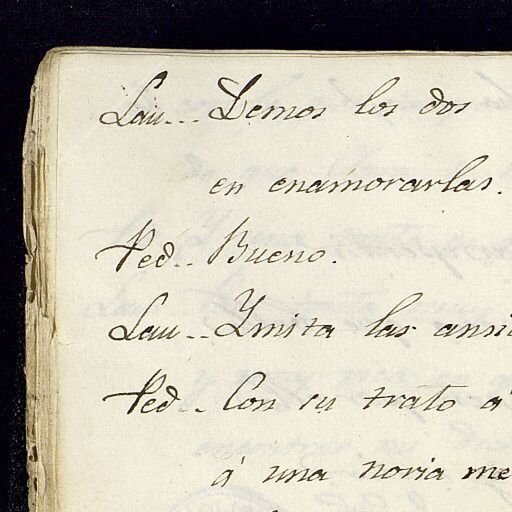 Lau... Demos los dos
en enamorarlas.
Ped.. Bueno.
Lau.. Ymita las ansi
Ped.. Con su trato á
á una noria me